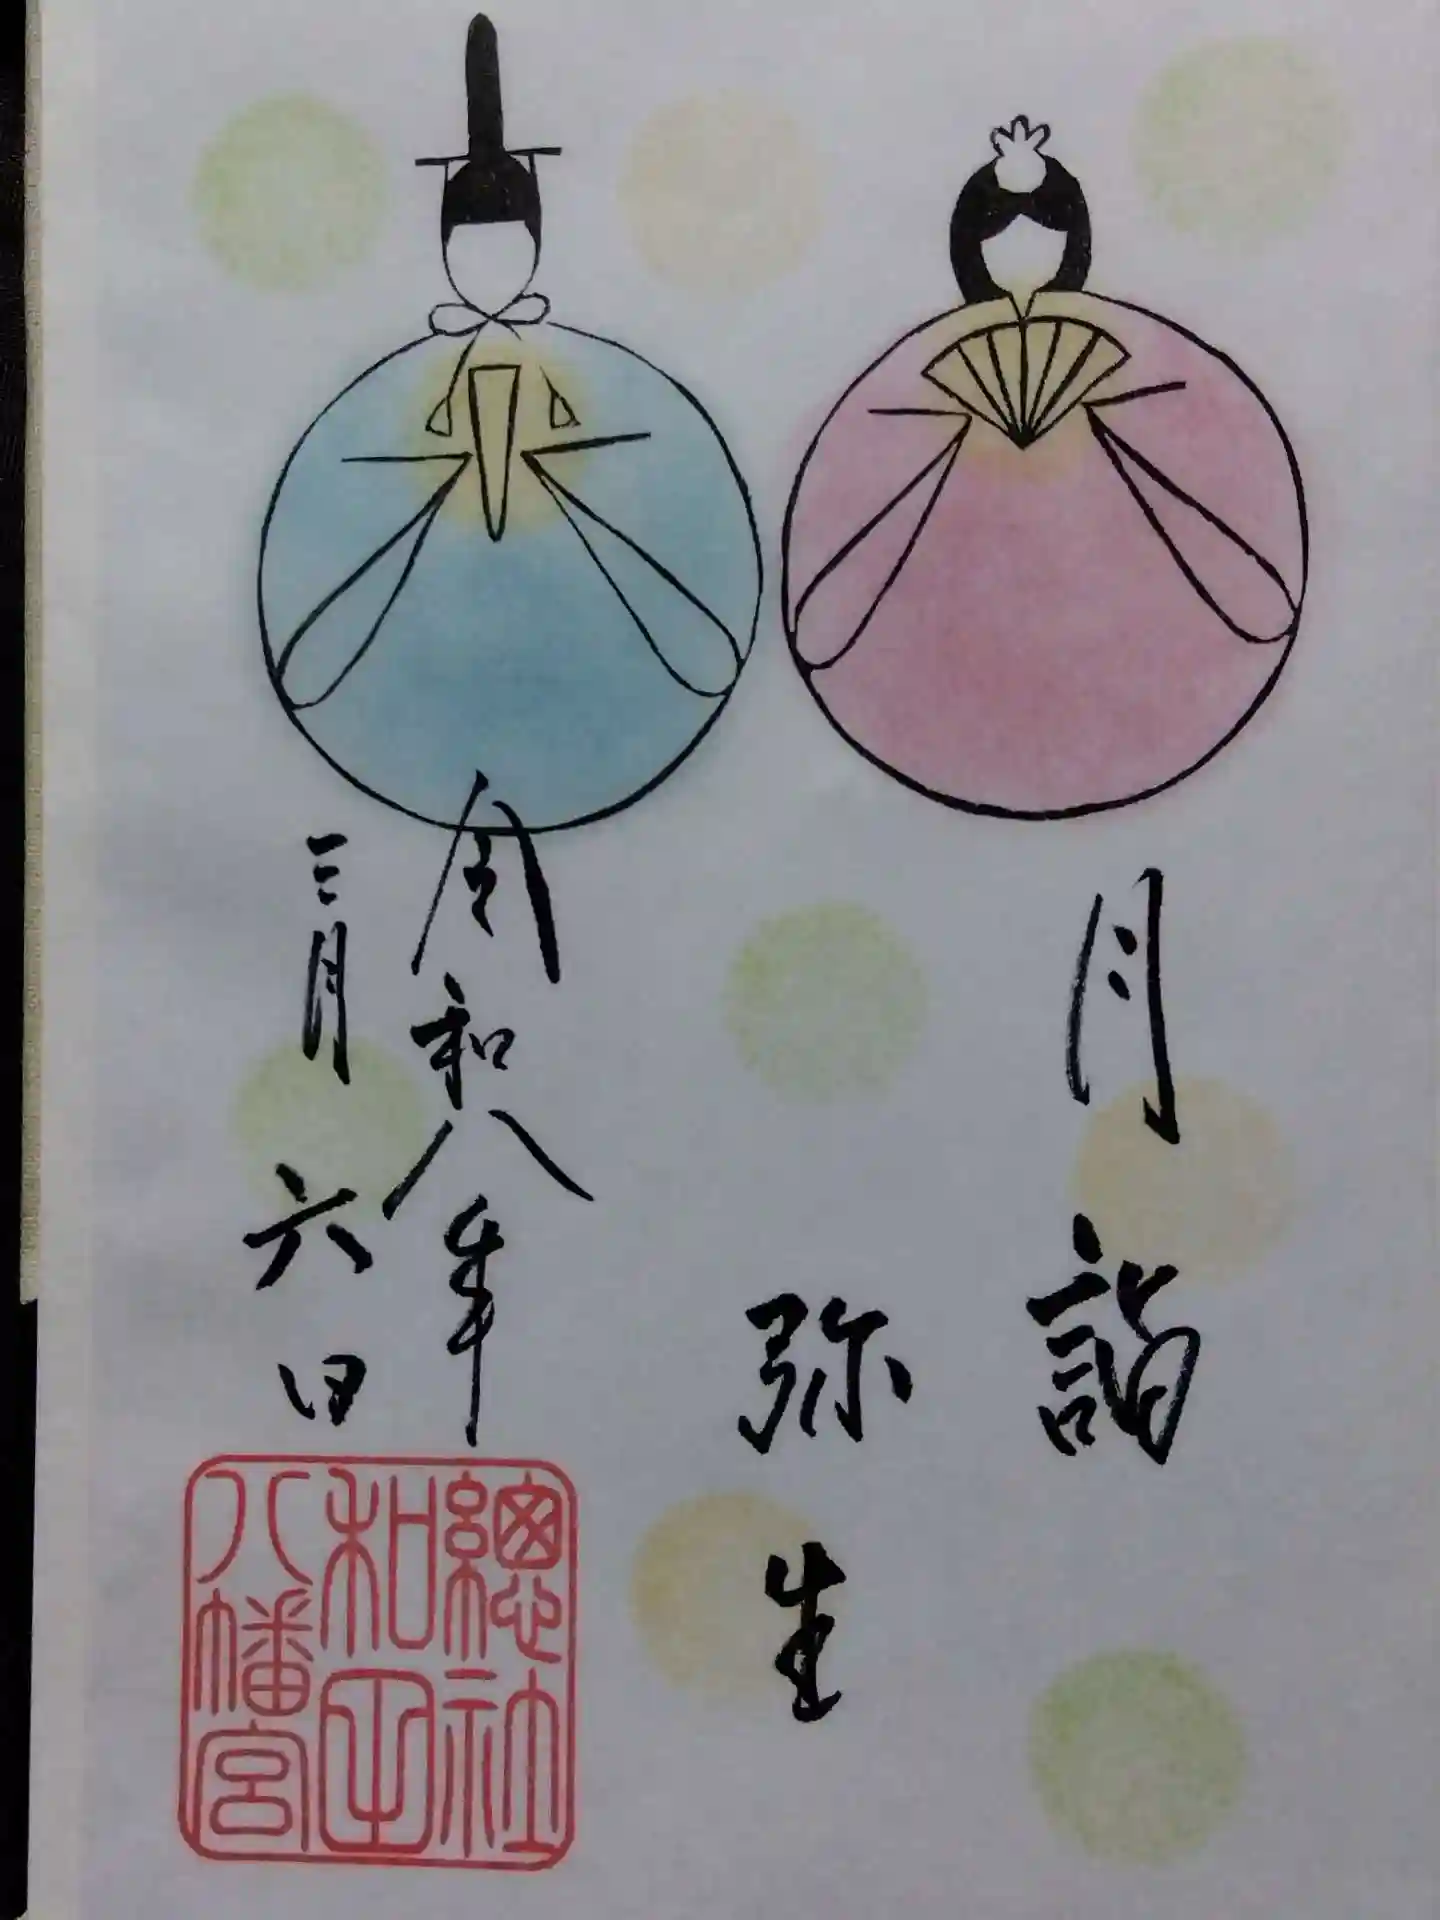 月詣
弥生
令和八年
三月六日
總社
和田
八幡宮